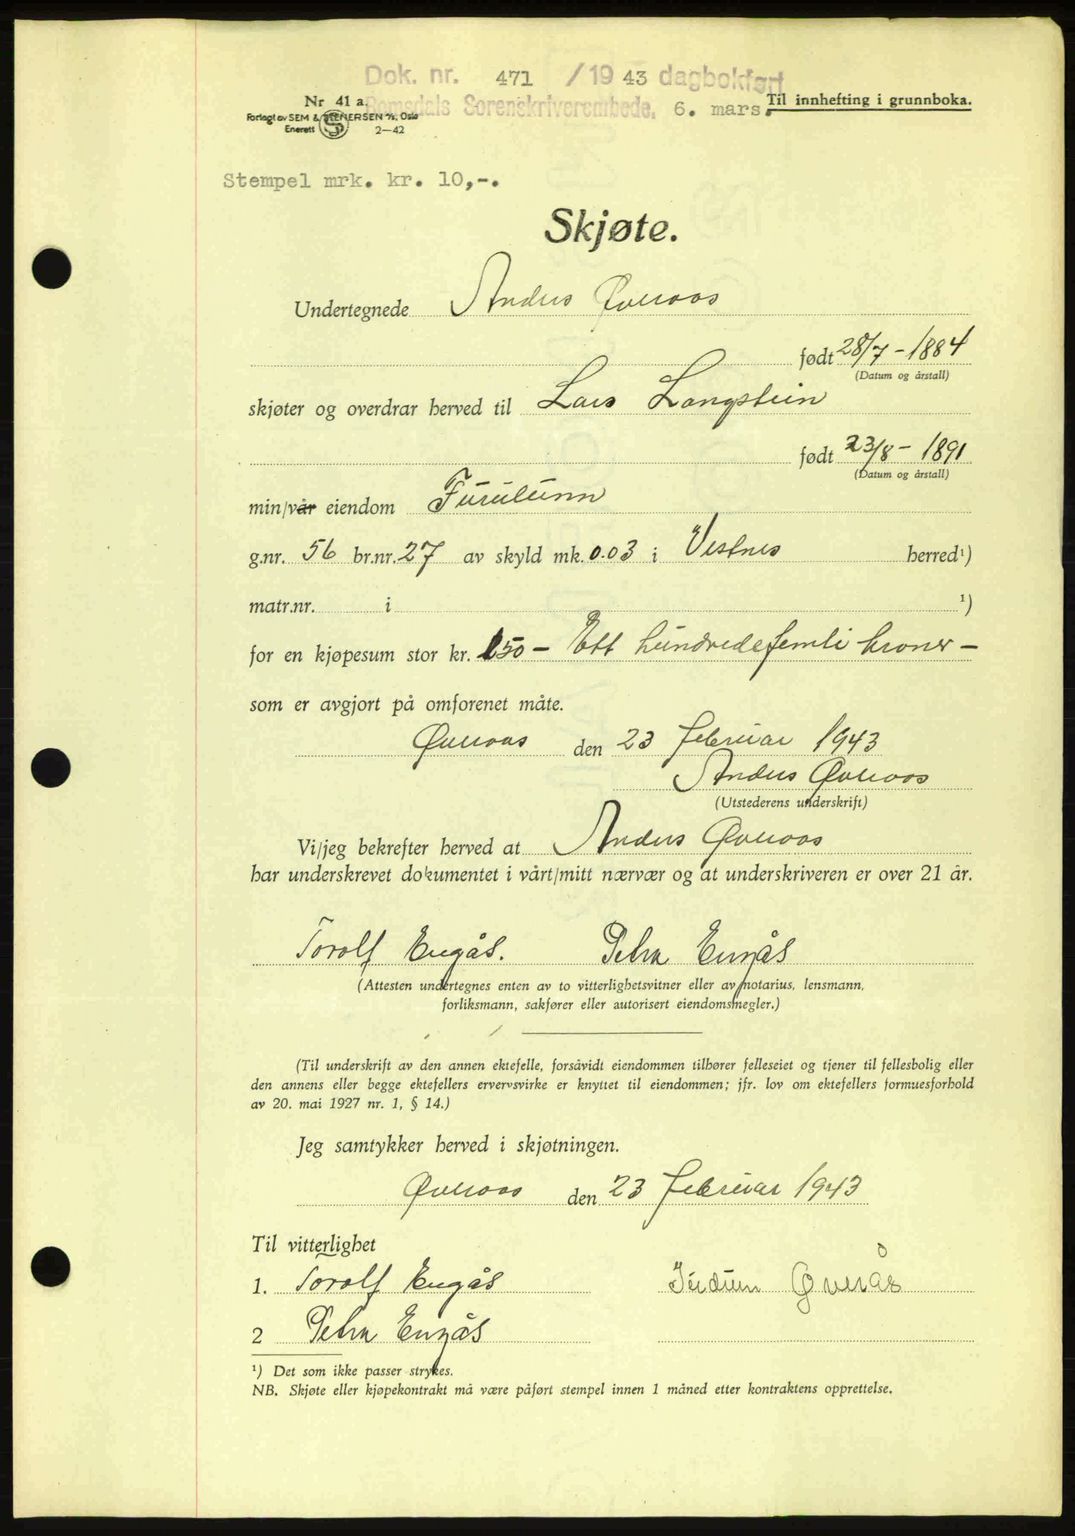 Dok. nr. 471 /19 43 dagbokført
Nr 41 a.
Romsdals Sorenskriverembede, 6. mars.
Til innhefting i grunnboka.
Forlagt av SEM & STENERSEN A/S, Oslo
Enerett 2-42
Stempel mrk. kr. 10,-.
Skjøte.
Undertegnede Anders Øveraas
født 28/7 - 1884
(Datum og årstall)
skjøter og overdrar herved til Lars Langstein
født 23/8 - 1891
(Datum og årstall)
min/vår eiendom Furulunn
g.nr. 56 br.nr. 27 av skyld mk. 0.03 i Vestnes herred¹)
matr.nr. i ¹)
for en kjøpesum stor kr. 150 - Ett hundredefemti kroner -
som er avgjort på omforenet måte.
Øveraas den 23 februar 1943
Anders Øveraas
(Utstederens underskrift)
Vi/jeg bekrefter herved at Anders Øveraas
har underskrevet dokumentet i vårt/mitt nærvær og at underskriveren er over 21 år.
Torolf Engås. Petra Engås
(Attesten undertegnes enten av to vitterlighetsvitner eller av notarius, lensmann,
forliksmann, sakfører eller autorisert eiendomsmegler.)
(Til underskrift av den annen ektefelle, forsåvidt eiendommen tilhører felleseiet og tjener til fellesbolig eller
den annens eller begge ektefellers ervervsvirke er knyttet til eiendommen; jfr. lov om ektefellers formuesforhold
av 20. mai 1927 nr. 1, § 14.)
Jeg samtykker herved i skjøtningen.
Øveraas den 23 februar 1943
Til vitterlighet
1. Torolf Engås Øverås
2 Petra Engås
¹) Det som ikke passer strykes.
NB. Skjøte eller kjøpekontrakt må være påført stempel innen 1 måned etter kontraktens opprettelse.